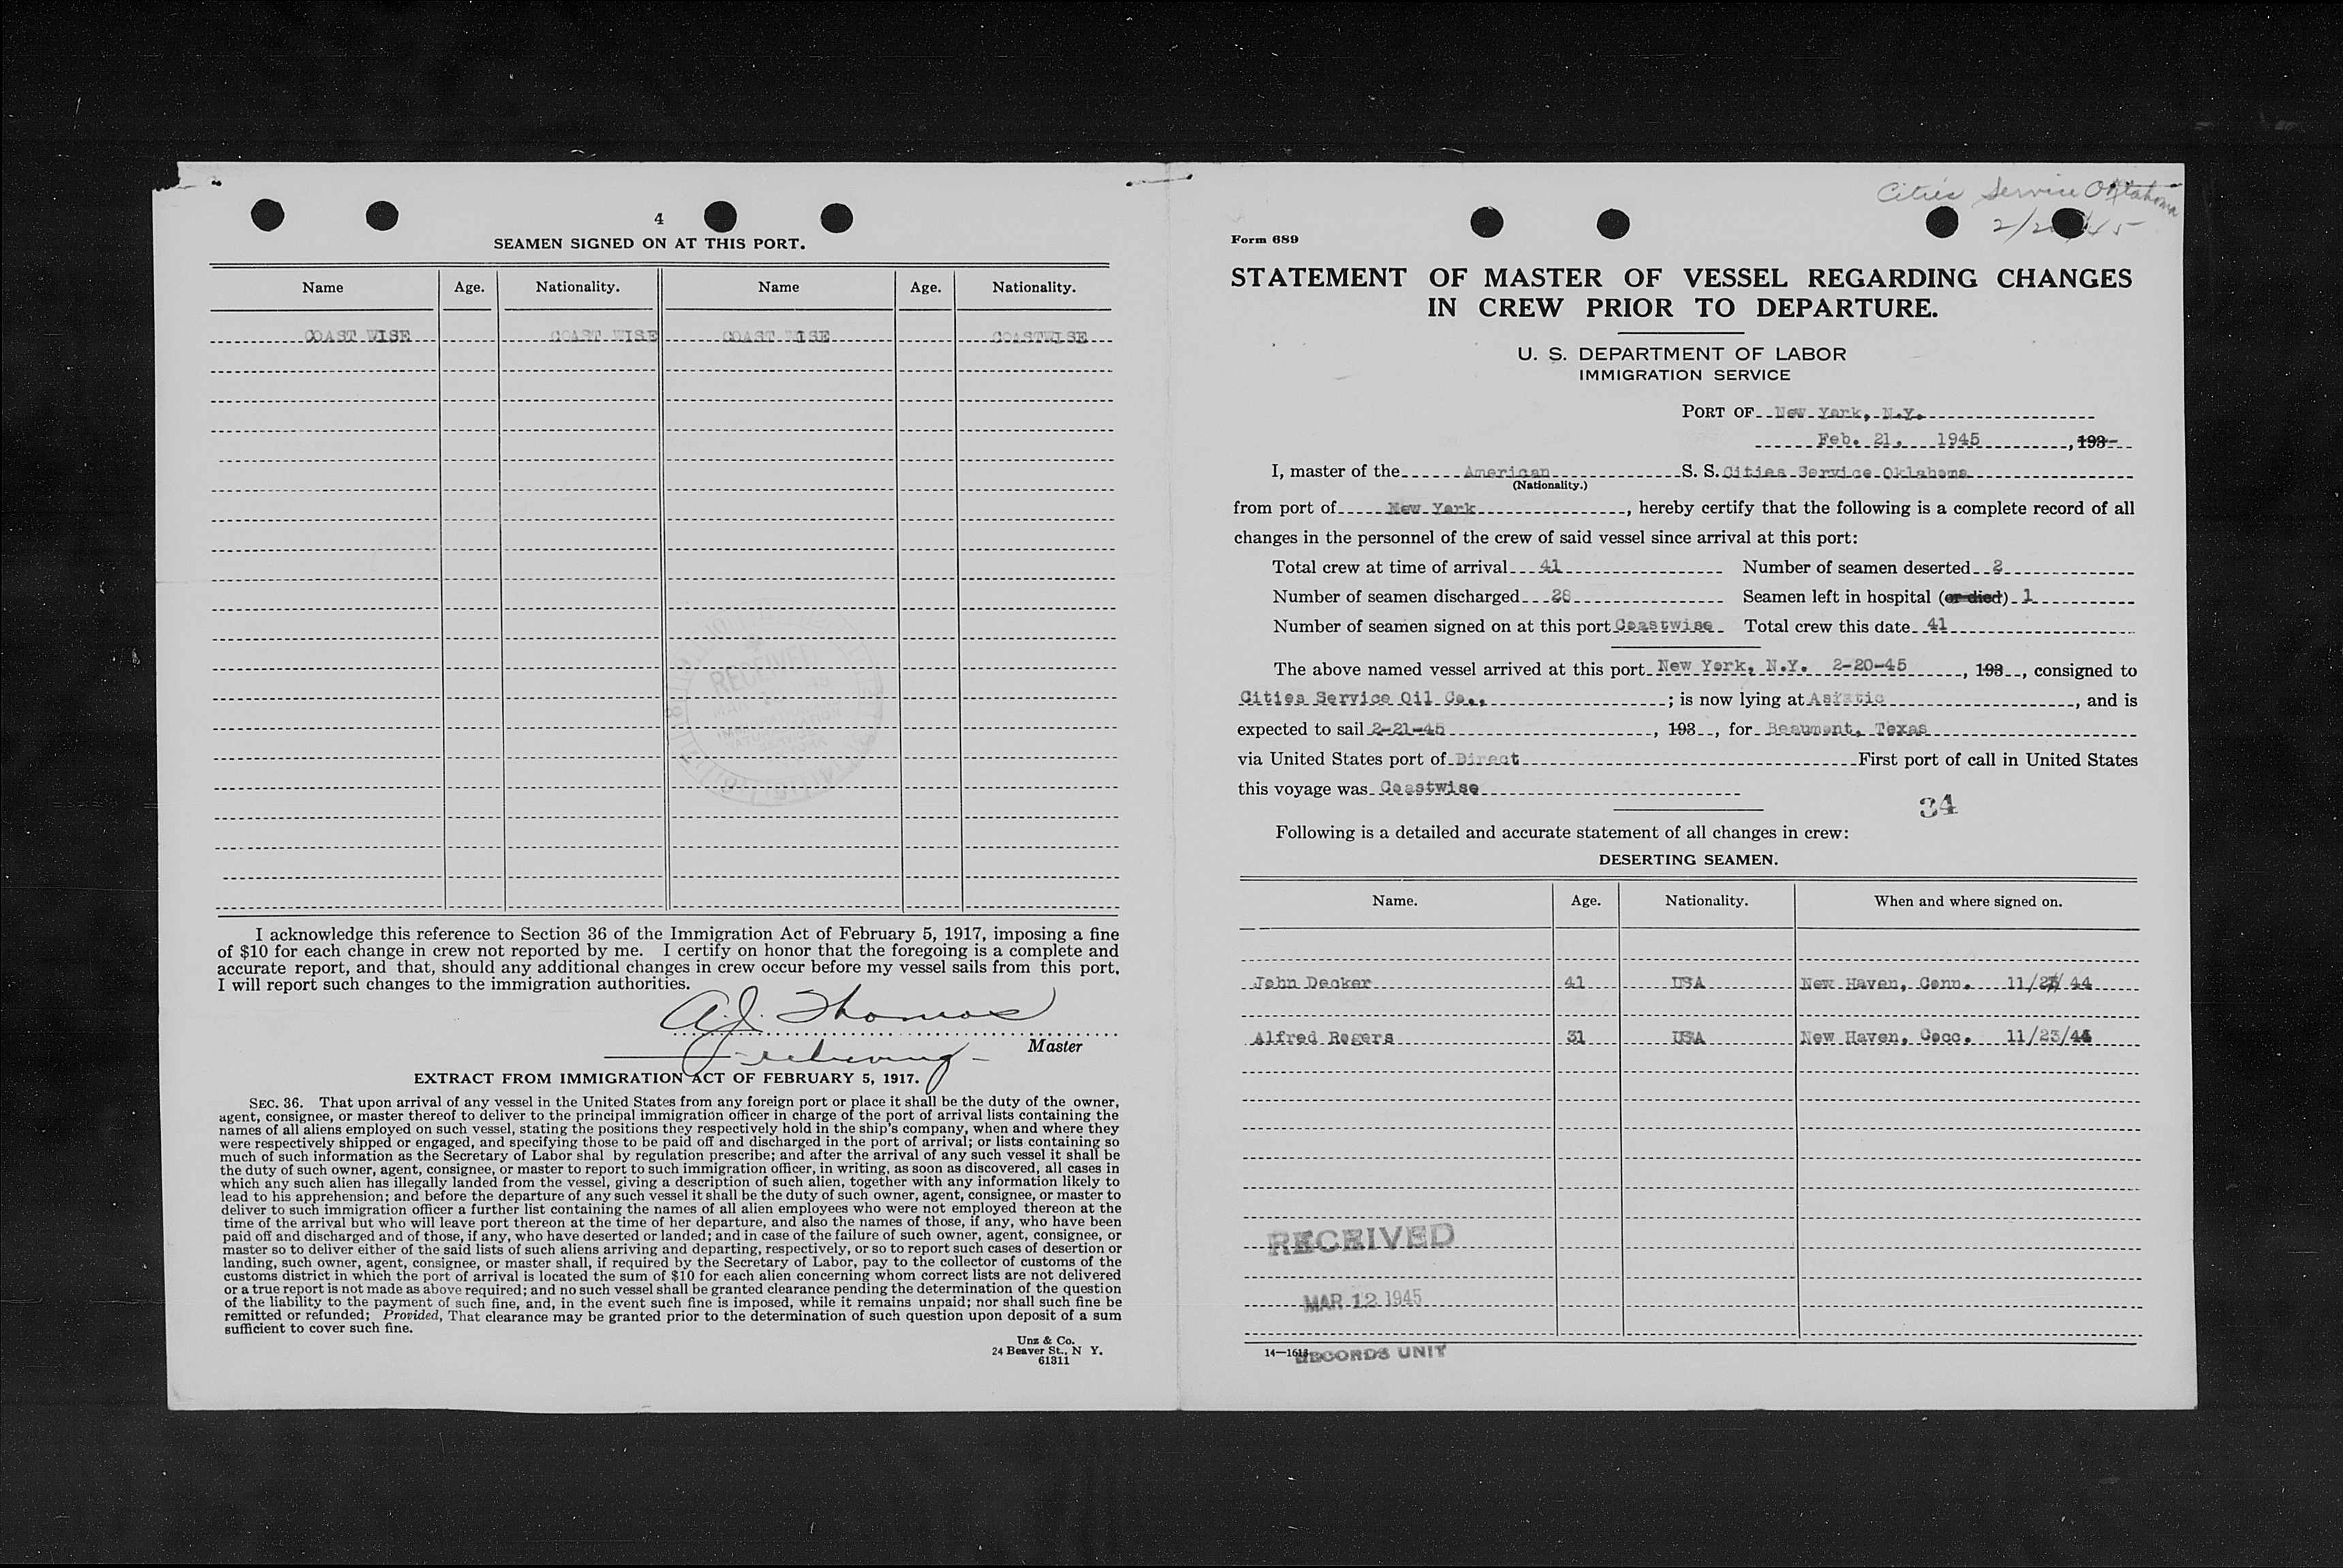 4
SEAMEN SIGNED ON AT THIS PORT.
Name Age. Nationality. Name Age. Nationality.
COAST WISE COAST WISE COAST WISE COASTWISE
RECEIVED
I acknowledge this reference to Section 36 of the Immigration Act of February 5, 1917, imposing a fine
of $10 for each change in crew not reported by me. I certify on honor that the foregoing is a complete and
accurate report, and that, should any additional changes in crew occur before my vessel sails from this port,
I will report such changes to the immigration authorities.
A.J. Thomas
Master
- relieving -
EXTRACT FROM IMMIGRATION ACT OF FEBRUARY 5, 1917.
SEC. 36. That upon arrival of any vessel in the United States from any foreign port or place it shall be the duty of the owner,
agent, consignee, or master thereof to deliver to the principal immigration officer in charge of the port of arrival lists containing the
names of all aliens employed on such vessel, stating the positions they respectively hold in the ship's company, when and where they
were respectively shipped or engaged, and specifying those to be paid off and discharged in the port of arrival; or lists containing so
much of such information as the Secretary of Labor shal by regulation prescribe; and after the arrival of any such vessel it shall be
the duty of such owner, agent, consignee, or master to report to such immigration officer, in writing, as soon as discovered, all cases in
which any such alien has illegally landed from the vessel, giving a description of such alien, together with any information likely to
lead to his apprehension; and before the departure of any such vessel it shall be the duty of such owner, agent, consignee, or master to
deliver to such immigration officer a further list containing the names of all alien employees who were not employed thereon at the
time of the arrival but who will leave port thereon at the time of her departure, and also the names of those, if any, who have been
paid off and discharged and of those, if any, who have deserted or landed; and in case of the failure of such owner, agent, consignee, or
master so to deliver either of the said lists of such aliens arriving and departing, respectively, or so to report such cases of desertion or
landing, such owner, agent, consignee, or master shall, if required by the Secretary of Labor, pay to the collector of customs of the
customs district in which the port of arrival is located the sum of $10 for each alien concerning whom correct lists are not delivered
or a true report is not made as above required; and no such vessel shall be granted clearance pending the determination of the question
of the liability to the payment of such fine, and, in the event such fine is imposed, while it remains unpaid; nor shall such fine be
remitted or refunded; Provided, That clearance may be granted prior to the determination of such question upon deposit of a sum
sufficient to cover such fine.
Unz & Co.
24 Beaver St., N Y.
61311
Cities Service Oklahoma
2/2 /45
Form 689
STATEMENT OF MASTER OF VESSEL REGARDING CHANGES
IN CREW PRIOR TO DEPARTURE.
U. S. DEPARTMENT OF LABOR
IMMIGRATION SERVICE
PORT OF New York, N.Y.
Feb. 21, 1945, 193-
I, master of the American S. S. Cities Service Oklahoma
(Nationality.)
from port of New York, hereby certify that the following is a complete record of all
changes in the personnel of the crew of said vessel since arrival at this port:
Total crew at time of arrival 41 Number of seamen deserted 2
Number of seamen discharged 28 Seamen left in hospital (or died) 1
Number of seamen signed on at this port Coastwise Total crew this date 41
The above named vessel arrived at this port New York, N.Y. 2-20-45, 193 , consigned to
Cities Service Oil Co., ; is now lying at Asiatic, and is
expected to sail 2-21-45, 193 , for Beaumont, Texas
via United States port of Direct First port of call in United States
this voyage was Coastwise
34
Following is a detailed and accurate statement of all changes in crew:
DESERTING SEAMEN.
Name. Age. Nationality. When and where signed on.
John Decker 41 USA New Haven, Conn. 11/23/44
Alfred Rogers 31 USA New Haven, Cocc. 11/23/44
RECEIVED
MAR 12 1945
14—1613
RECORDS UNIT